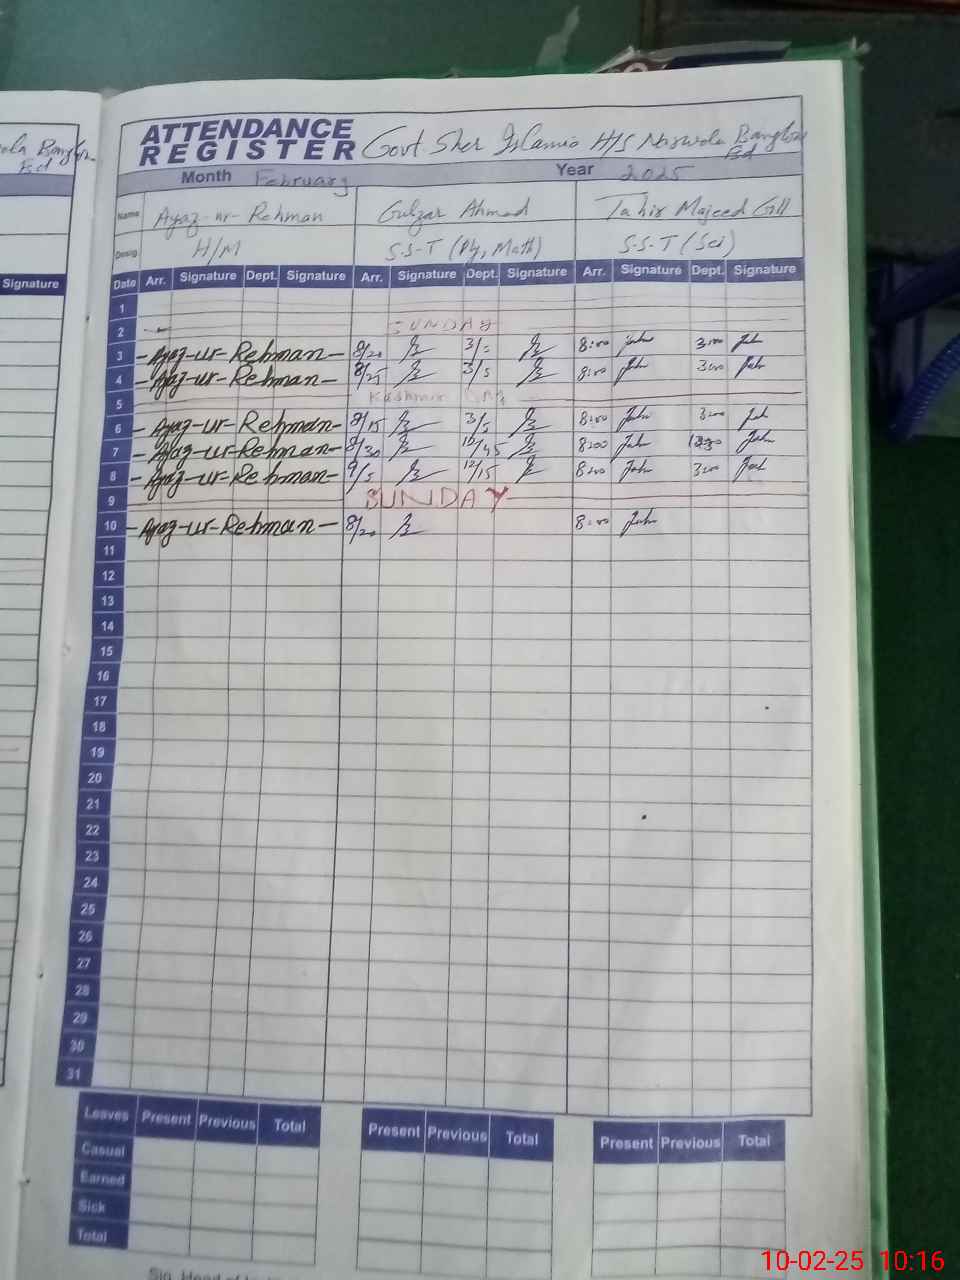 ATTENDANCE REGISTER Govt. Sher Islamia H/S
Month February Year 2025
Name Ayaz-ur-Rehman Gulzar Ahmad Tahir Majeed Gill
Desig H/M S.S-T (Phy, Math) S.S-T (Sci)
Date Arr. Signature Dept. Signature Arr. Signature Dept. Signature Arr. Signature Dept. Signature
1
2 SUNDAY
3 -Ayaz-ur-Rehman- 8/20 3/5 8:00 3:00
4 -Ayaz-ur-Rehman- 8/25 3/5 8:00 3:00
5 Kashmir Day
6 -Ayaz-ur-Rehman- 8/15 3/5 8:00 3:00
7 -Ayaz-ur-Rehman- 8/30 12/45 8:00
8 -Ayaz-ur-Rehman- 9/5 12/15 8:00 3:00
9 SUNDAY
10 -Ayaz-ur-Rehman- 8/20 8:00
11
12
13
14
15
16
17
18
19
20
21
22
23
24
25
26
27
28
29
30
31
Leaves Present Previous Total Present Previous Total Present Previous Total
Casual
Earned
Sick
Total
Signature
10-02-25 10:16